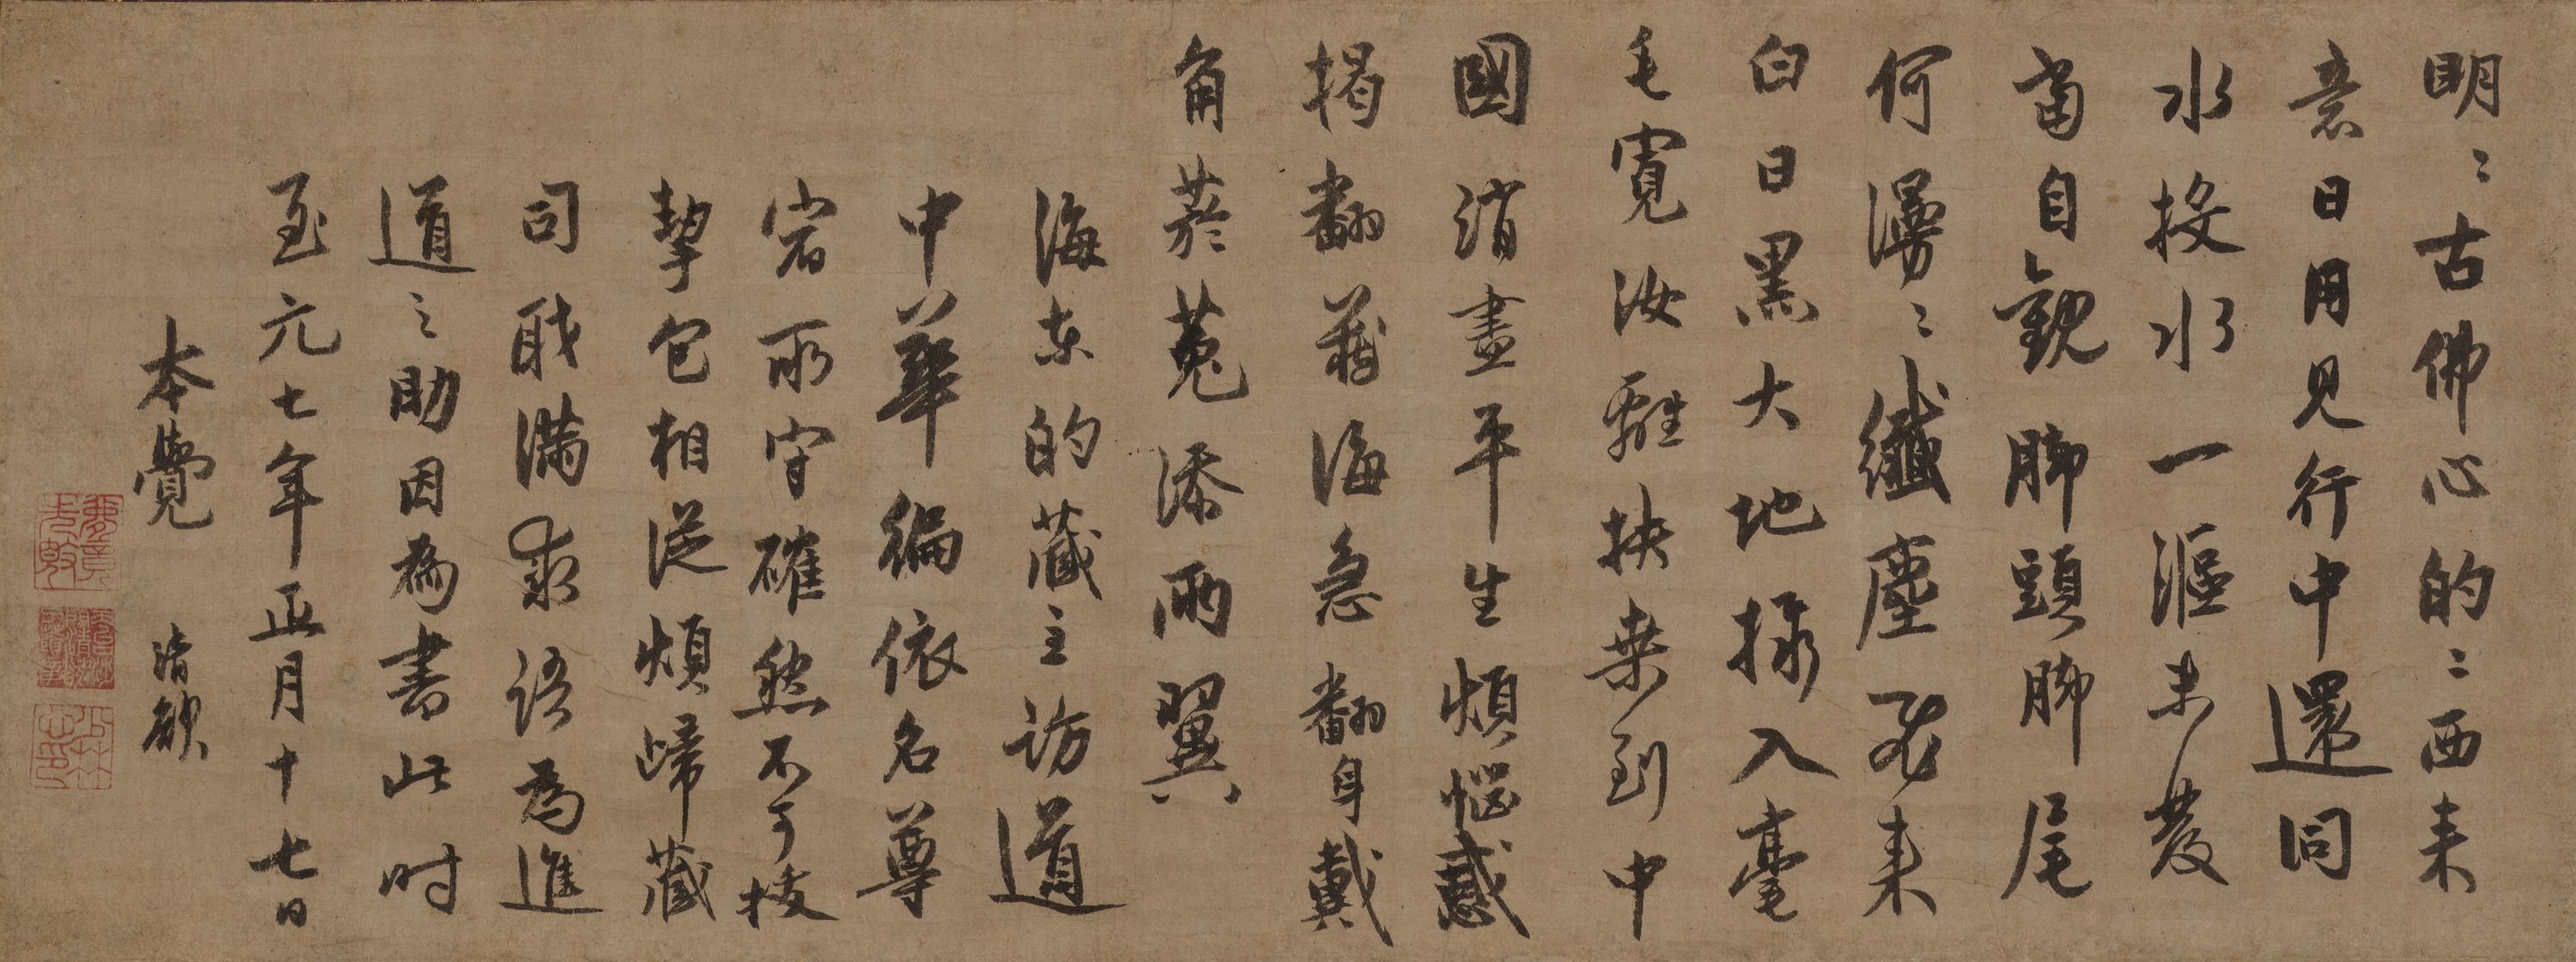 明〻古佛心的〻西来
意日用見行中還同
水投水一漚未發
當自觀脚頭脚尾
何漫〻纖塵飛来
白日黑大地掇入毫
毛寬汝離扶桒到中
國消盡平生煩惱惑
揭翻藏海急翻身戴
角菸菟添兩翼
海東的藏主訪道
中華徧依名尊
宿所守確然不可拔
挈包相從煩歸藏
司職滿求語為進
道之助因為書此時
至元七年正月十七日
本覺 清欲